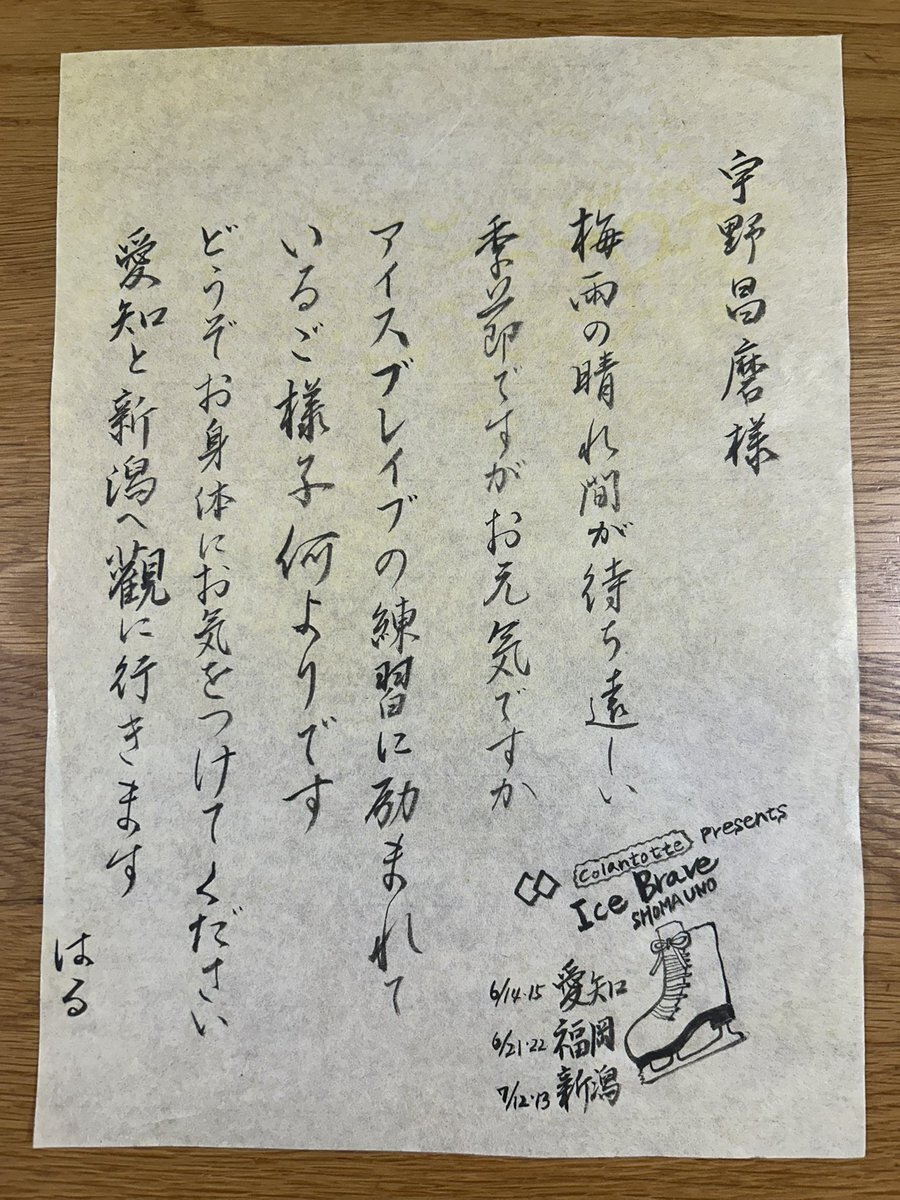 宇野昌磨様
梅雨の晴れ間が待ち遠しい
季節ですがお元気ですか
アイスブレイブの練習に励まれて
いるご様子何よりです
どうぞお身体にお気をつけてください
愛知と新潟へ観に行きます
はる
Colantotte presents
Ice Brave
SHOMA UNO
6/14・15 愛知
6/21・22 福岡
7/12・13 新潟